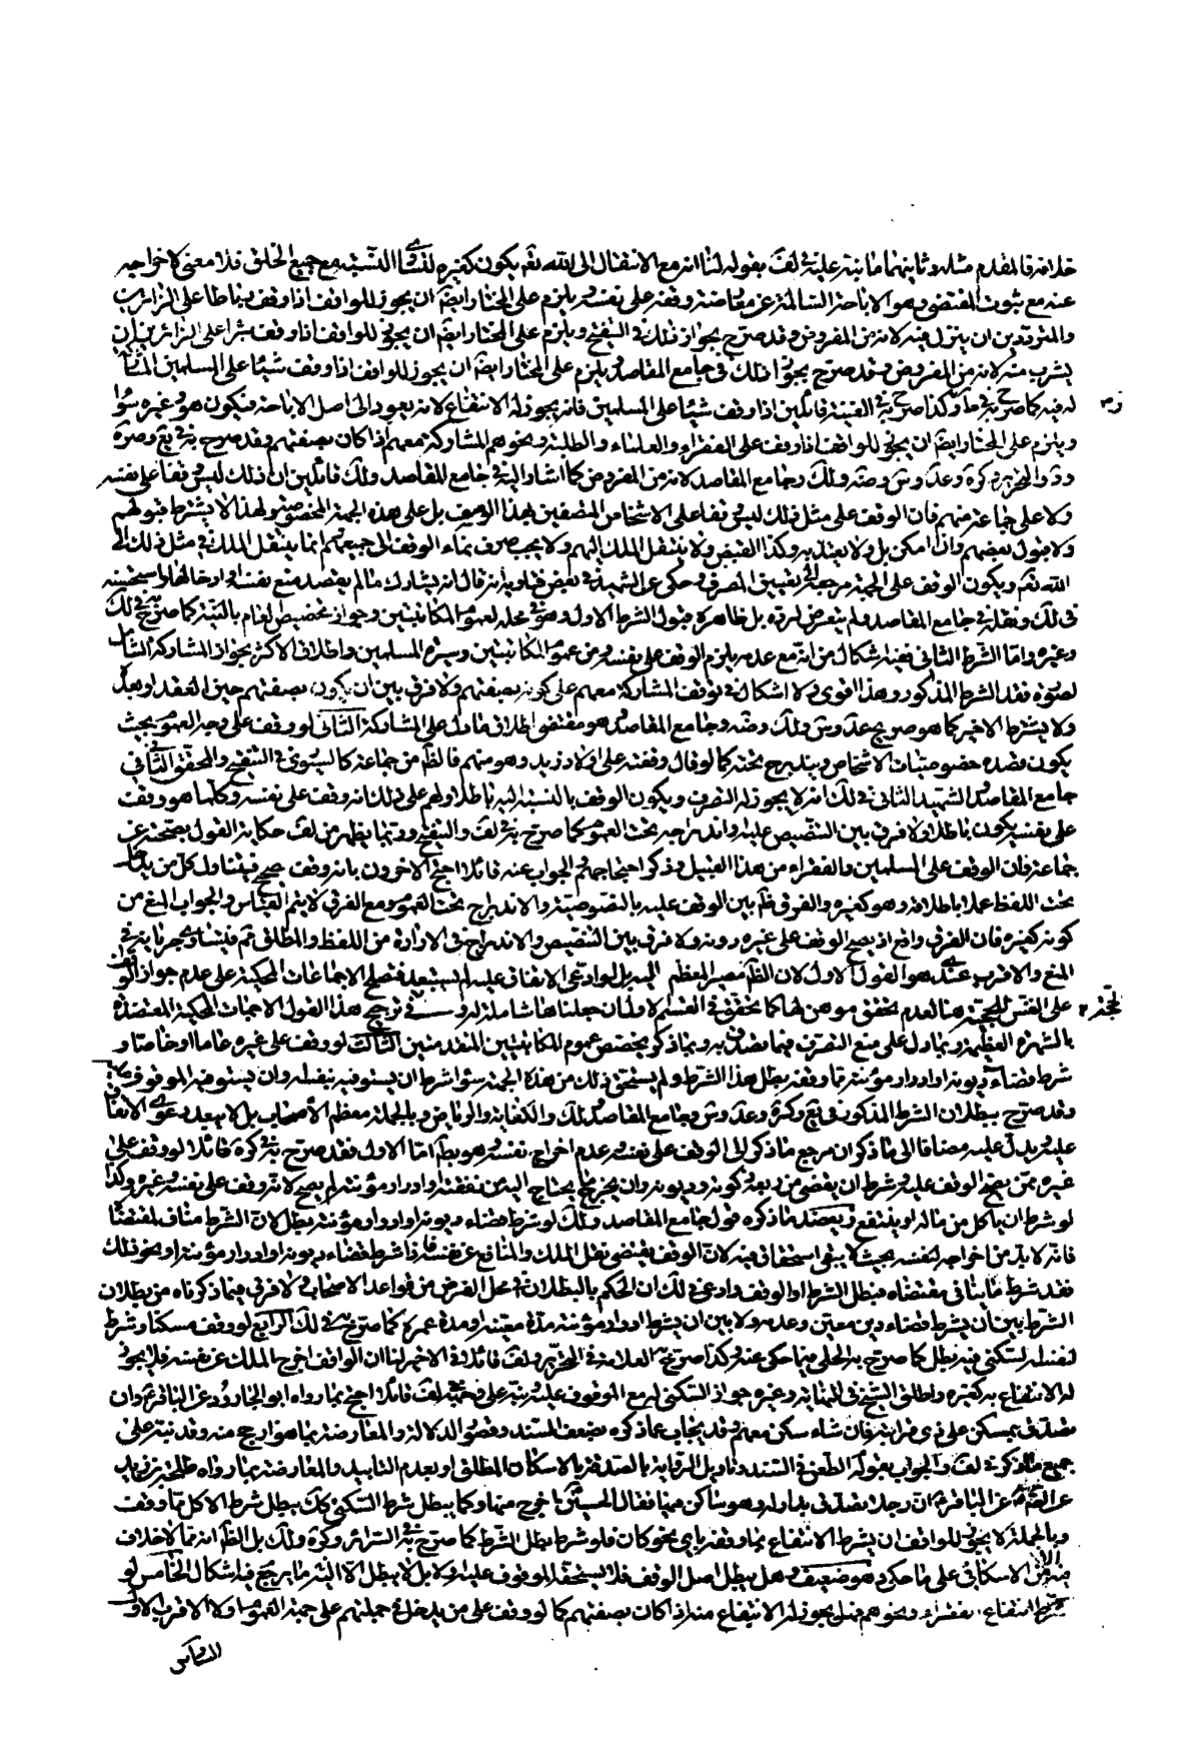 خلافه فالمقدم مثله وثانيهما ما نبه عليه في لف بقوله لنا انه مع الانتقال الى الله تقم يكون كغيره لتساوى النسبة مع جميع الخلق فلا معنى لاخراجه
عنه مع ثبوت المقتضى وهو الاباحة السالمة عن معارضة وقفه على نفسه ويلزم على المختار ايضا ان يجوز للواقف اذا وقف رباطا على الزائرين
والمترددين ان ينزل فيه لانه من المفروض وقد صرح بجواز ذلك في التنقيح ويلزم على المختار ايضا ان يجوز للواقف اذا وقف بئرا على الزائرين ان
يشرب منه لانه من المفروض وقد صرح بجواز ذلك في جامع المقاصد ويلزم على المختار ايضا ان يجوز للواقف اذا وقف شيئا على المسلمين المشاركة
له فيه كما صرح به في وكذا صرح به في الغنية قائلين اذا وقف شيئا على المسلمين فانه يجوز له الانتفاع لانه يعود الى اصل الاباحة فيكون هو وغيره سواء
ويلزم على المختار ايضا ان يجوز للواقف اذا وقف على الفقراء والعلماء والطلبة ونحوهم المشاركة معهم اذا كان بصفتهم وقد صرح به في يع وصره
ود والتحرير وكره وعد وس وضه ولك وجامع المقاصد لانه من المفروض كما اشار اليه في جامع المقاصد ولك قائلين ان ذلك ليس وقفا على نفسه
ولا على جماعة منهم فان الوقف على مثل ذلك ليس وقفا على الاشخاص المتصفين بهذا الوصف بل على هذه الجهة المخصوصة ولهذا لا يشترط قبولهم
ولا قبول بعضهم واذا امكن بل ولا يعتد به وكذا القبض ولا ينتقل الملك اليهم ولا يجب صرف نماء الوقف الى جميعهم انما ينتقل الملك في مثل ذلك الى
الله تقم ويكون الوقف على الجهة مرجعه الى تعيين المصرف وحكى عن الشهيد في بعض فتاويه انه قال انه يشارك ما لم يقصد منع نفسه او ادخالها واستحسنه
في لك ونقله في جامع المقاصد ولم يتعرض لرده بل ظاهره قبول الشرط الاول وهو في محله لعموم المكاتبتين وجواز تخصيص العام بالنية كما صرح به في لك
وغيره واما الشرط الثاني ففيه اشكال من انه مع عدمه يلزم الوقف على نفسه ومن عموم المكاتبتين وسيرة المسلمين واطلاق الاكثر بجواز المشاركة الشامل
لصورة فقد الشرط المذكور وهذا اقوى ولا اشكال في توقف المشاركة معهم على كونه بصفتهم ولا فرق بين ان يكون بصفتهم حين العقد او بعده
ولا يشترط الاخير كما هو صريح عد وس ولك وضه وجامع المقاصد وهو مقتضى اطلاق ما دل على المشاركة الثاني لو وقف على وجه العموم بحيث
يكون قصده خصوصيات الاشخاص ويندرج تحته كما لو قال وقفته على اولاد زيد وهو منهم فالظاهر من جماعة كالسيورى في التنقيح والمحقق الثاني في
جامع المقاصد والشهيد الثاني في لك انه لا يجوز له التصرف ويكون الوقف بالنسبة اليه باطلا ولهم على ذلك انه وقف على نفسه وكلما هو وقف
على نفسه يكون باطلا ولا فرق بين التنصيص عليه واندراجه تحت العموم كما صرح به في لف والتنقيح وربما يظهر من لف حكاية القول بصحته عن
جماعة فان الوقف على المسلمين والفقراء من هذا القبيل وذكر احتجاجهم والجواب عنه قائلا احتج الاخرون بانه وقف صحيح فيتناول كل من يدخل
تحت اللفظ عملا باطلاقه وهو كغيره والفرق ظاهر بين الوقف عليه بالخصوصية والاندراج تحت العموم ومع الفرق لا يتم القياس والجواب المنع من
كونه كغيره فان الفرق واقع اذ يصح الوقف على غيره دونه ولا فرق بين التنصيص والاندراج في الارادة من اللفظ والمطلق تم فيتساويا
المنع والاقرب عندى هو القول الاول لان الظاهر مصير المعظم اليه بل لو ادعى الاتفاق عليه لم يستبعد فتصلح الاجماعات المحكية على عدم جواز الوقف
على النفس للحجية هنا لعدم تحقق موهن لها كما تحقق في القسم الاول ان جعلناها شاملة له و في ترجيح هذا القول الاجماعات المحكية المعتضدة
بالشهرة العظيمة وبما دل على منع التصرف فيما تصدق به وبما ذكر يخصص عموم المكاتبتين المتقدمتين الثالث لو وقف على غيره عاما او خاصا و
شرط قضاء ديونه او ادرار مؤنته مما وقفه بطل هذا الشرط ولم يستحق ذلك من هذه الجهة سواء شرط ان يستوفيه بنفسه او ان يستوفيه الموقوف عليه
وقد صرح ببطلان الشرط المذكور في يع وكره وعد وس وجامع المقاصد ولك والكفاية والرياض وبالجملة معظم الاصحاب بل لا يبعد دعوى الاتفاق
عليه ويدل عليه مضافا الى ما ذكر ان مرجع ما ذكر الى الوقف على نفسه وعدم اخراج نفسه وهو بط اما الاول فقد صرح به في كره قائلا لو وقف على
غيره ممن يصح الوقف عليه وشرط ان يقضى من ريعه زكوته وديونه وان يخرج ما يحتاج اليه من نفقته وادرار مؤنته لم يصح لانه وقف على نفسه وغيره وكذا
لو شرط ان ياكل من ماله او ينتفع ويعضد ما ذكره قول جامع المقاصد ولك لو شرط قضاء ديونه او ادرار مؤنته بطل لان الشرط مناف لمقتضاه
فانه لا بد من اخراجه لنفسه بحيث لا يبقى استحقاق فيه لان الوقف يقتضى نقل الملك والمنافع عن نفسه فاذا شرط قضاء ديونه او ادرار مؤنته او نحو ذلك
فقد شرط ما ينافي مقتضاه فيبطل الشرط او الوقف وادعى في لك ان الحكم بالبطلان في محل الفرض من قواعد الاصحاب ولا فرق فيما ذكرناه من بطلان
الشرط بين ان يشترط قضاء دين معين وعدمه ولا بين ان يشترط ادرار مؤنته مدة معينة او مدة عمره كما صرح به في لك الرابع لو وقف مسكنا وشرط
لنفسه السكنى فيه بطل كما صرح به الحلى فيما حكى عنه وكذا صرح به العلامة في التحرير ولف قائلا في الاخير لنا ان الواقف اخرج الملك عن نفسه فلا يجوز
له الانتفاع به كغيره واطلق الشيخ في النهاية وغيره جواز السكنى له مع الموقوف عليه ونبه على حجته في لف قائلا احتج بما رواه ابو الجارود عن الباقر ع وان
تصدق بمسكن على ذى قرابته فان شاء سكن معهم وقد يجاب عما ذكره بضعف السند وقصور الدلالة والمعارضة بما هو ارجح منه وقد نبه على
جميع ما ذكر في لف والجواب بقوله الطعن في السند وتاويل الرواية بالصدقة بالاسكان المطلق او بعدم التابيد والمعارضة بما رواه طلحة بن زيد
عن الصادق ع عن الباقر ع ان رجلا تصدق بدار له وهو ساكن فيها فقال الحسين ع اخرج منها وكما يبطل شرط السكنى كك يبطل شرط الاكل مما وقفت
وبالجملة لا يجوز للواقف ان يشترط الانتفاع بما وقفه باى نحو كان فلو شرط بطل الشرط كما صرح به في السرائر وكره ولك بل الظاهر انه مما لا خلاف
فيه الا من الاسكافي على ما حكى وهو ضعيف وهل يبطل اصل الوقف فلا يستحقه الموقوف عليه او لا بل لا يبطل الا الشرط فيه اشكال الخامس لو
شرط انتفاع فقراء ونحوهم فهل يجوز له الانتفاع منه اذا كان بصفتهم كما لو وقف على من يدخل في جملتهم على جهة العموم او لا الاقرب الاول
السادس